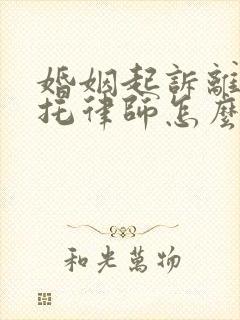 婚姻起訴離
托律師怎麼
和光萬物